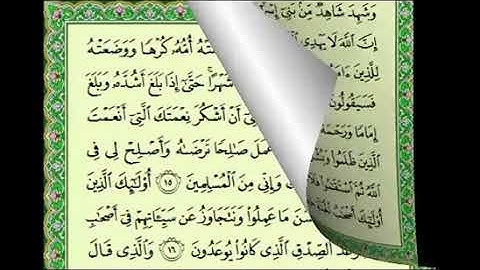 وَشَهِدَ شَاهِدٌ مِّنۢ بَنِىٓ إِسْرَ
إِنَّ ٱللَّهَ لَا يَهْدِى
لِلَّذِينَ ءَامَنُوا۟
فَسَيَقُولُونَ
إِمَامًا وَرَحْمَةً
ٱلَّذِينَ ظَلَمُوا۟ وَبُشْ
ٱللَّهُ ثُمَّ ٱسْتَقَٰمُوا۟ فَلَا
أُو۟لَٰٓئِكَ أَصْحَٰبُ ٱلْجَنَّةِ
ـتْهُ أُمُّهُۥ كُرْهًا وَوَضَعَتْهُ
شَهْرًا ۚ حَتَّىٰٓ إِذَا بَلَغَ أَشُدَّهُۥ وَبَلَغَ
ـىٓ أَنْ أَشْكُرَ نِعْمَتَكَ ٱلَّتِىٓ أَنْعَمْتَ
ـمَلَ صَٰلِحًا تَرْضَىٰهُ وَأَصْلِحْ لِى فِى
ـكَ وَإِنِّى مِنَ ٱلْمُسْلِمِينَ ١٥ أُو۟لَٰٓئِكَ ٱلَّذِينَ
ـسَنَ مَا عَمِلُوا۟ وَنَتَجَاوَزُ عَن سَيِّـَٔاتِهِمْ فِىٓ أَصْحَٰبِ
وَعْدَ ٱلصِّدْقِ ٱلَّذِى كَانُوا۟ يُوعَدُونَ ١٦ وَٱلَّذِى قَالَ